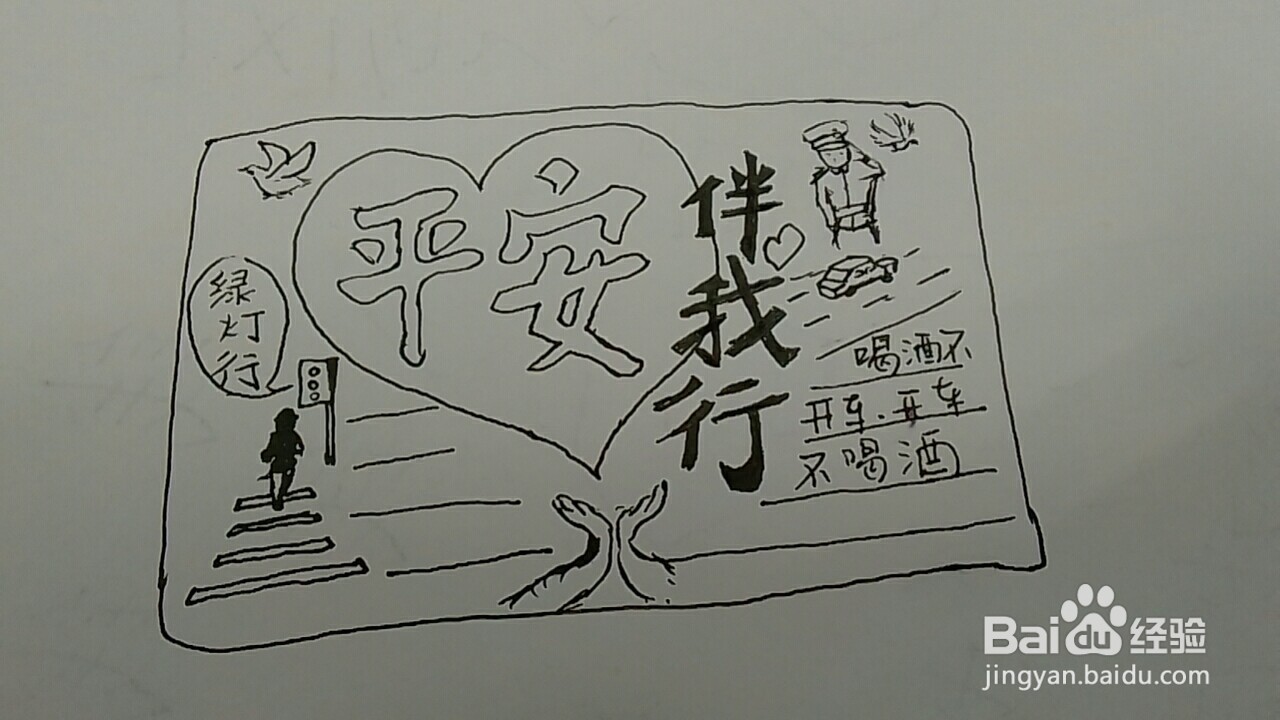 平安
伴我行
绿灯行
喝酒不
开车.开车
不喝酒
Baidu经验
jingyan.baidu.com